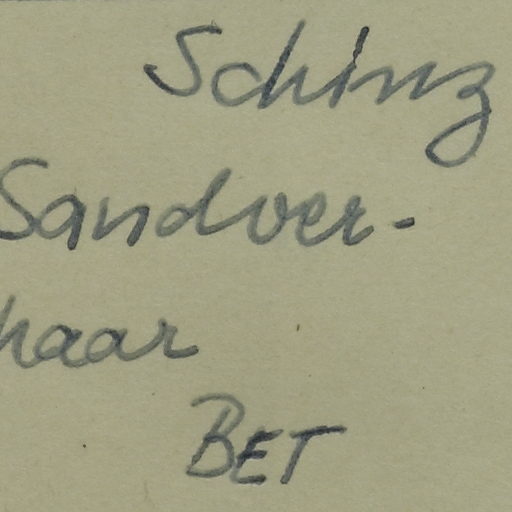 Schinz
Sandver-
haar
BET